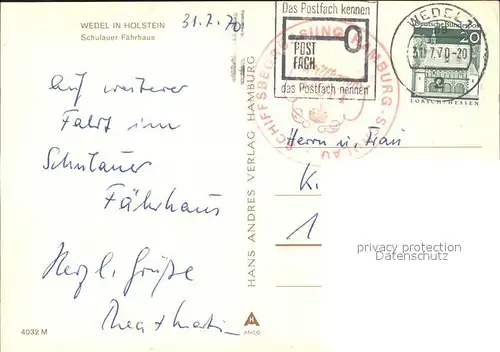 WEDEL IN HOLSTEIN
Schulauer Fährhaus
31.7.70
Auf weiterer
Fahrt im
Schulauer
Fährhaus
Herzl. Grüße
4032 M
HANS ANDRES VERLAG HAMBURG
ANCO
Das Postfach kennen
POST
FACH
das Postfach nennen
SCHIFFSBEGRÜSSUNG HAMBURG-SCHULAU
WEDEL
31.7.70-20
2
Deutsche Bundespost
20
LORSCH/HESSEN
Herrn u. Frau
K.
1
privacy protection
(DSGVO, GDPR)